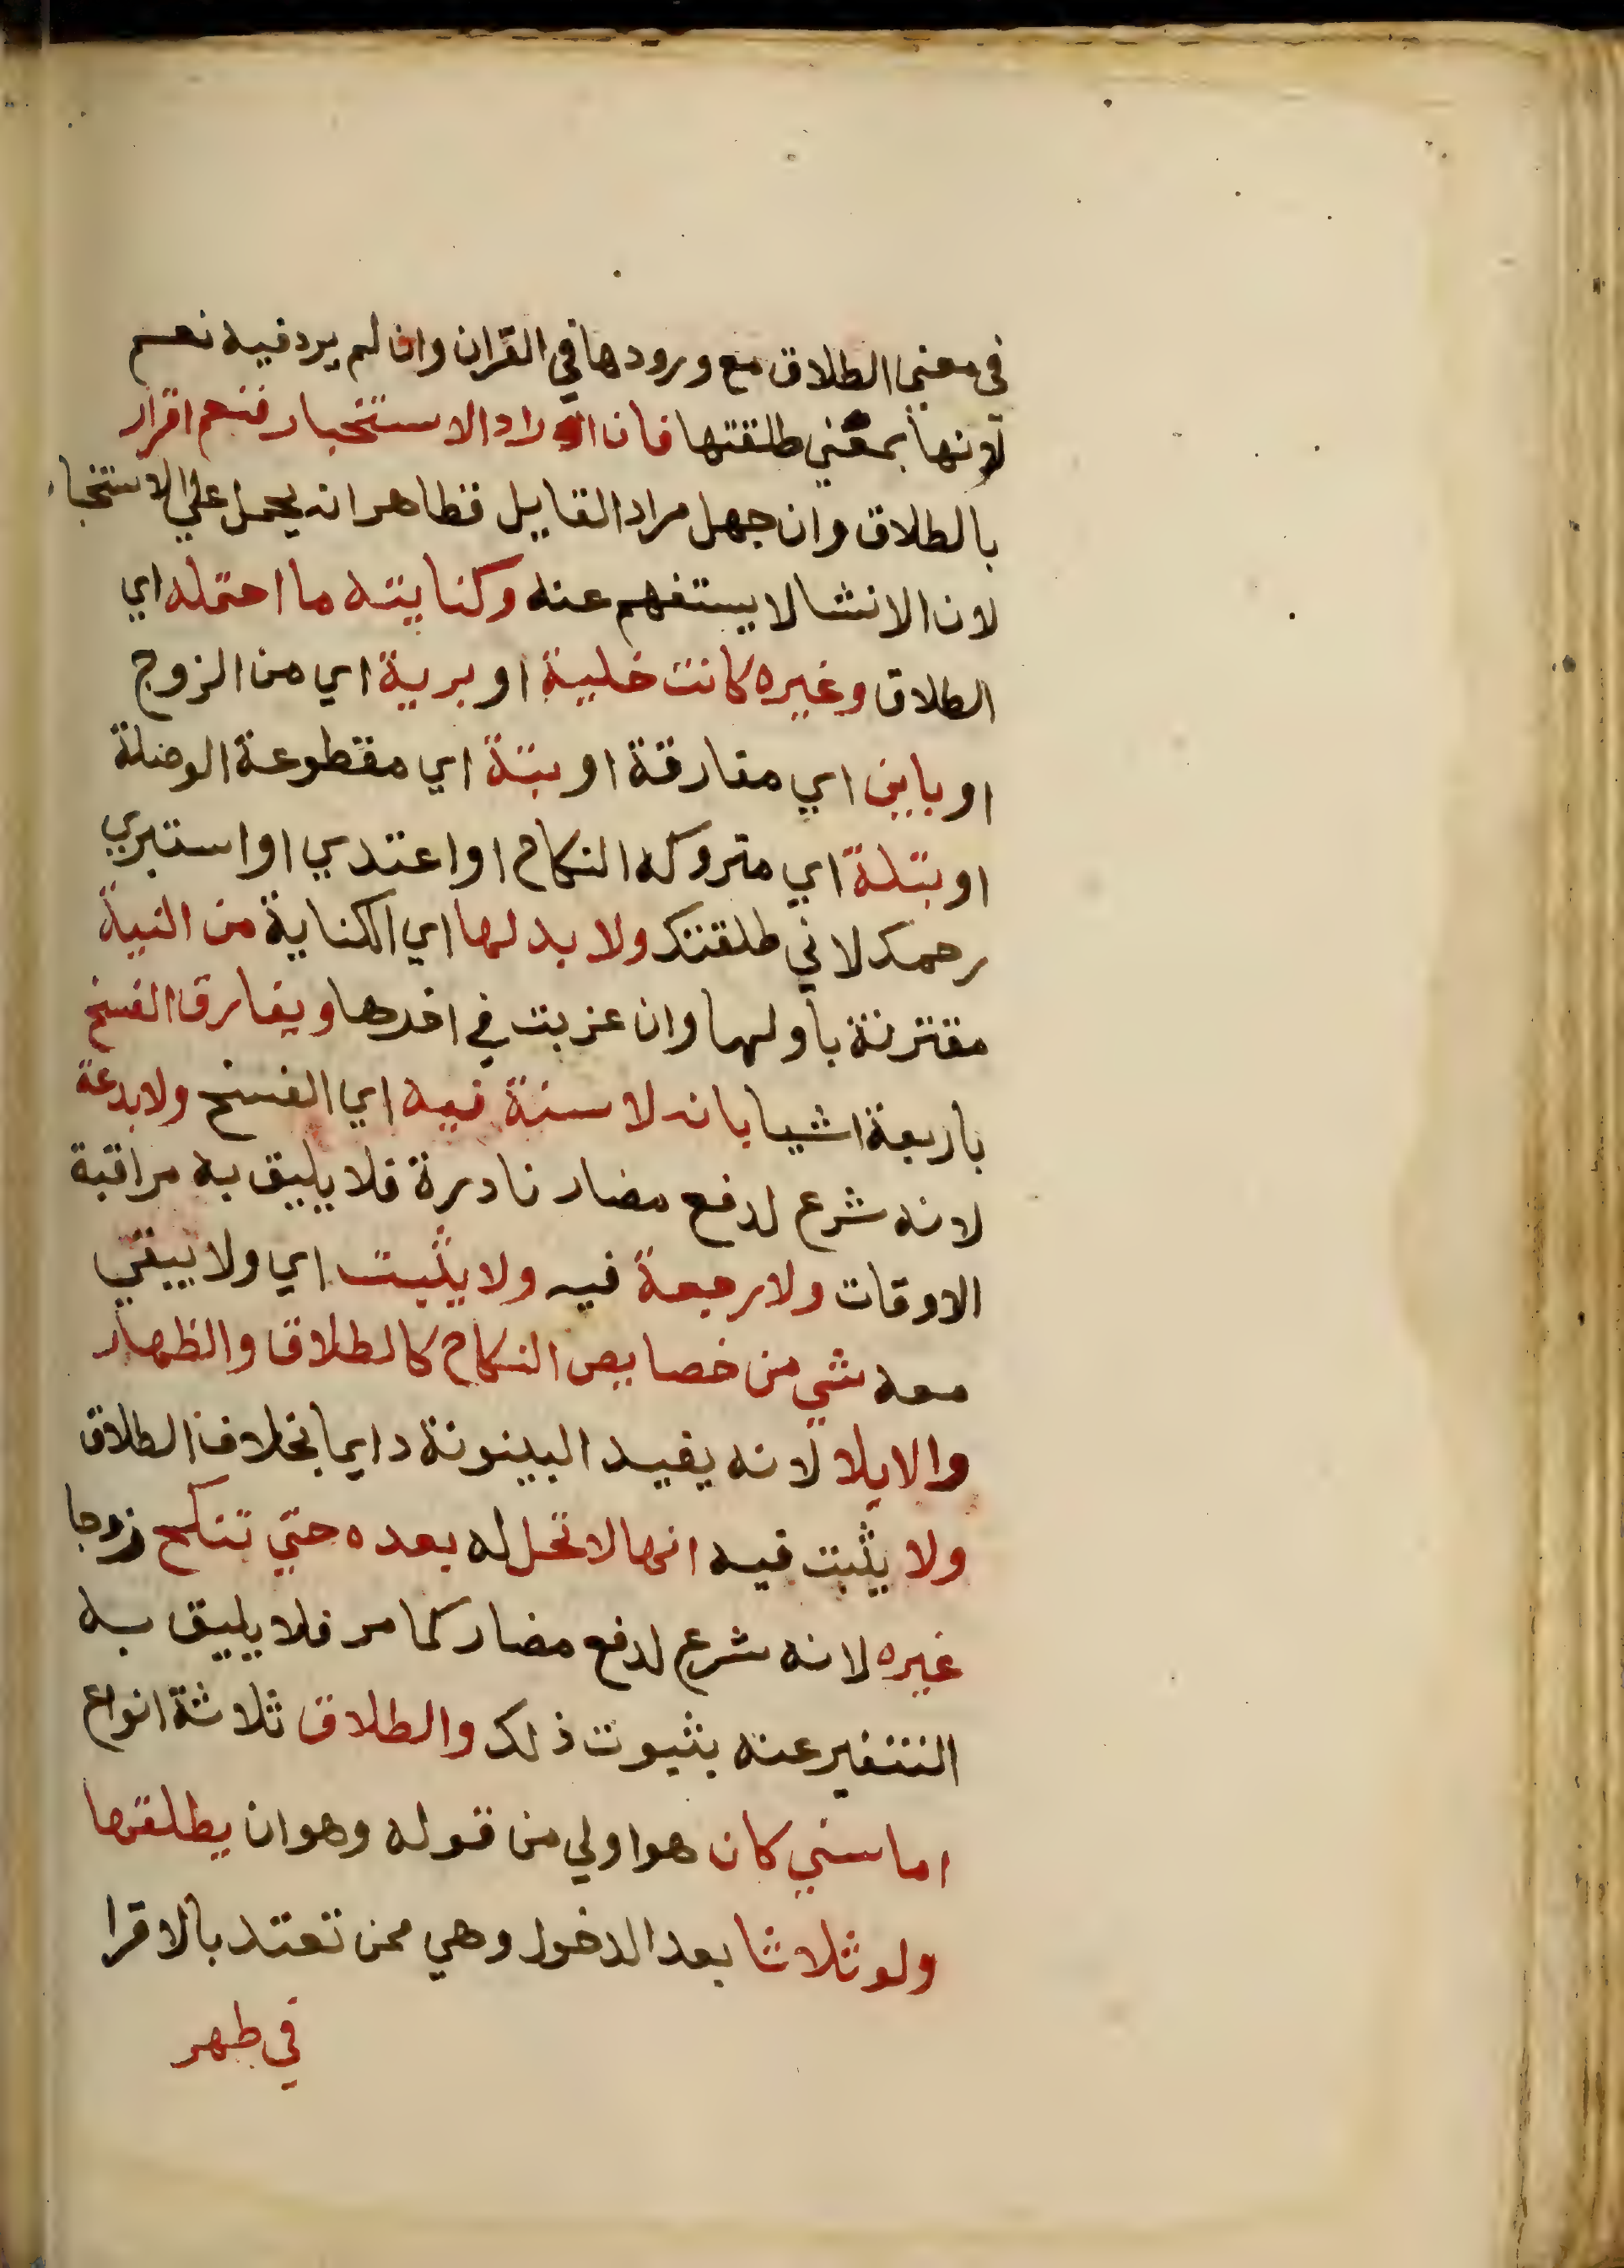 في معني الطلاق مع ورودها في القران وان لم يرد فيه نعم
لانها بمعني طلقتها فان اراد الاستخبار فنعم اقرار
بالطلاق وان جهل مراد القايل فظاهر انه يحمل علي الاستخبار
لان الانشا لا يستفهم عنه وكنايته ما احتمله اي
الطلاق وغيره كانت خلية او برية اي من الزوج
او باين اي مفارقة او بتة اي مقطوعة الوصلة
او بتلة اي متروكه النكاح او اعتدي او استبري
رحمك لاني طلقتك ولا بد لها اي الكناية من النية
مقترنة باولها وان عزبت في اخرها ويفارق الفسخ
باربعة اشيا بانه لا سنة فيه اي الفسخ ولا بدعة
لانه شرع لدفع مضار نادرة فلا يليق به مراقبة
الاوقات ولا رجعة فيه ولا يثبت اي ولا يبقي
معه شي من خصايص النكاح كالطلاق والظهار
والايلا لانه يفيد البينونة دايما بخلاف الطلاق
ولا يثبت فيه انها لا تحل له بعده حتي تنكح زوجا
غيره لانه شرع لدفع مضار كما مر فلا يليق به
التنفير عنه بثبوت ذلك والطلاق ثلاثة انواع
اما سني كان هو اولي من قوله وهو ان يطلقها
ولو ثلاثا بعد الدخول وهي ممن تعتد بالاقرا
في طهر